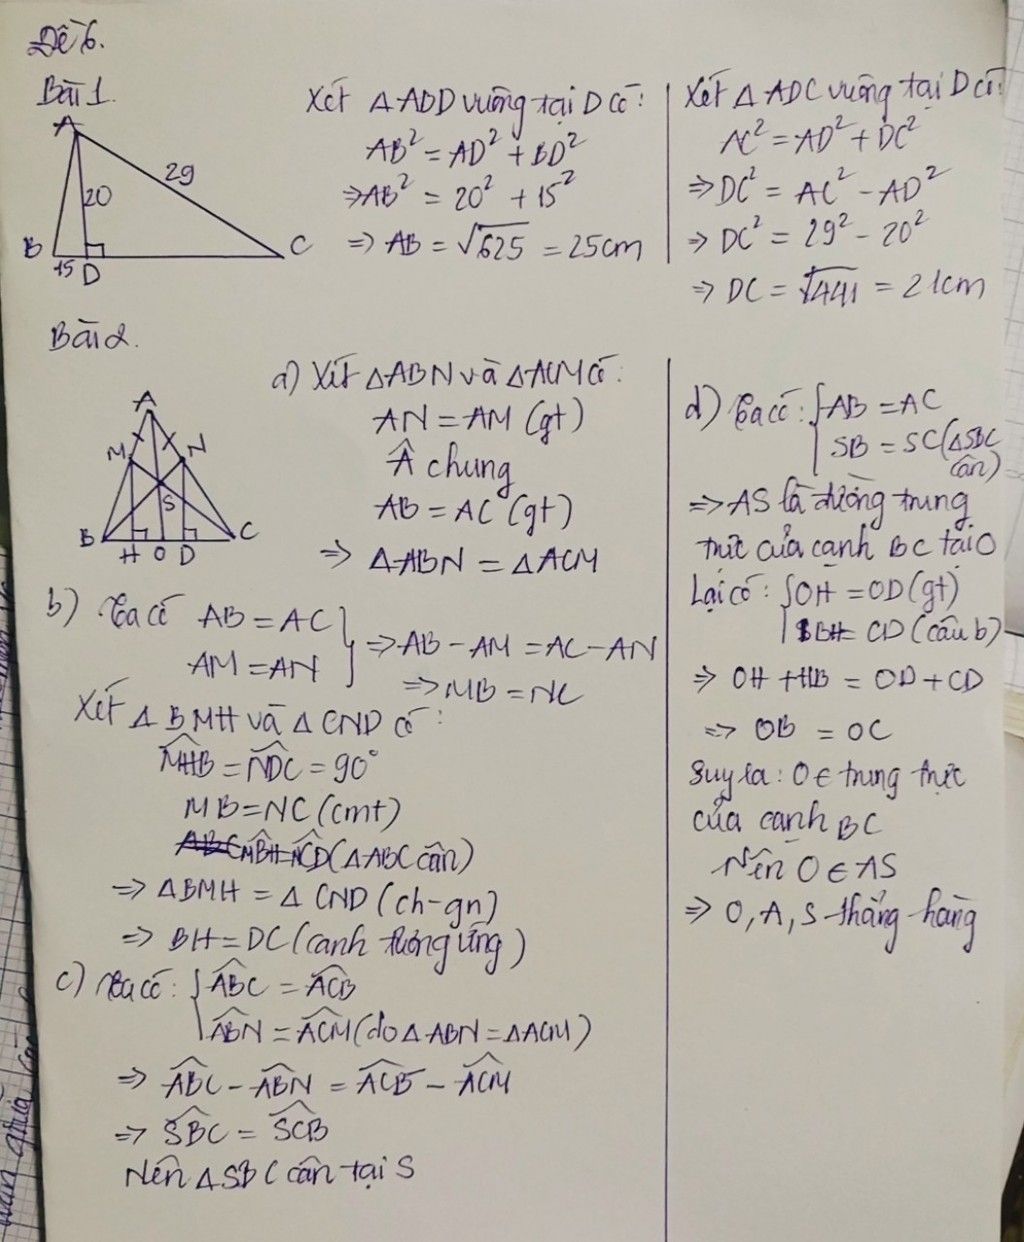 Đề 6.
Bài 1.
A
29
20
B
15
D
C
Xét △ABD vuông tại D có:
AB² = AD² + BD²
⇒ AB² = 20² + 15²
⇒ AB = √625 = 25cm
Xét △ADC vuông tại D có:
AC² = AD² + DC²
⇒ DC² = AC² - AD²
⇒ DC² = 29² - 20²
⇒ DC = √441 = 21cm
Bài 2.
A
M
N
S
B
H
O
D
C
a) Xét △ABN và △ACM có:
AN = AM (gt)
Â chung
AB = AC (gt)
⇒ △ABN = △ACM
b) Ta có AB = AC
AM = AN } ⇒ AB - AM = AC - AN
⇒ MB = NC
Xét △BMH và △CND có:
∠MHB = ∠NDC = 90°
MB = NC (cmt)
∠MBH = ∠NCD (△ABC cân)
⇒ △BMH = △CND (ch-gn)
⇒ BH = DC (cạnh tương ứng)
c) Ta có: { ∠ABC = ∠ACB
∠ABN = ∠ACM (do △ABN = △ACM)
⇒ ∠ABC - ∠ABN = ∠ACB - ∠ACM
⇒ ∠SBC = ∠SCB
Nên △SBC cân tại S
d) Ta có: { AB = AC
SB = SC (△SBC
cân)
⇒ AS là đường trung
trực của cạnh BC tại O
Lại có: { OH = OD (gt)
BH = CD (câu b)
⇒ OH + HB = OD + CD
⇒ OB = OC
Suy ra: O ∈ trung trực
của cạnh BC
Nên O ∈ AS
⇒ O, A, S thẳng hàng